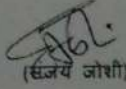 (संजय जोशी)